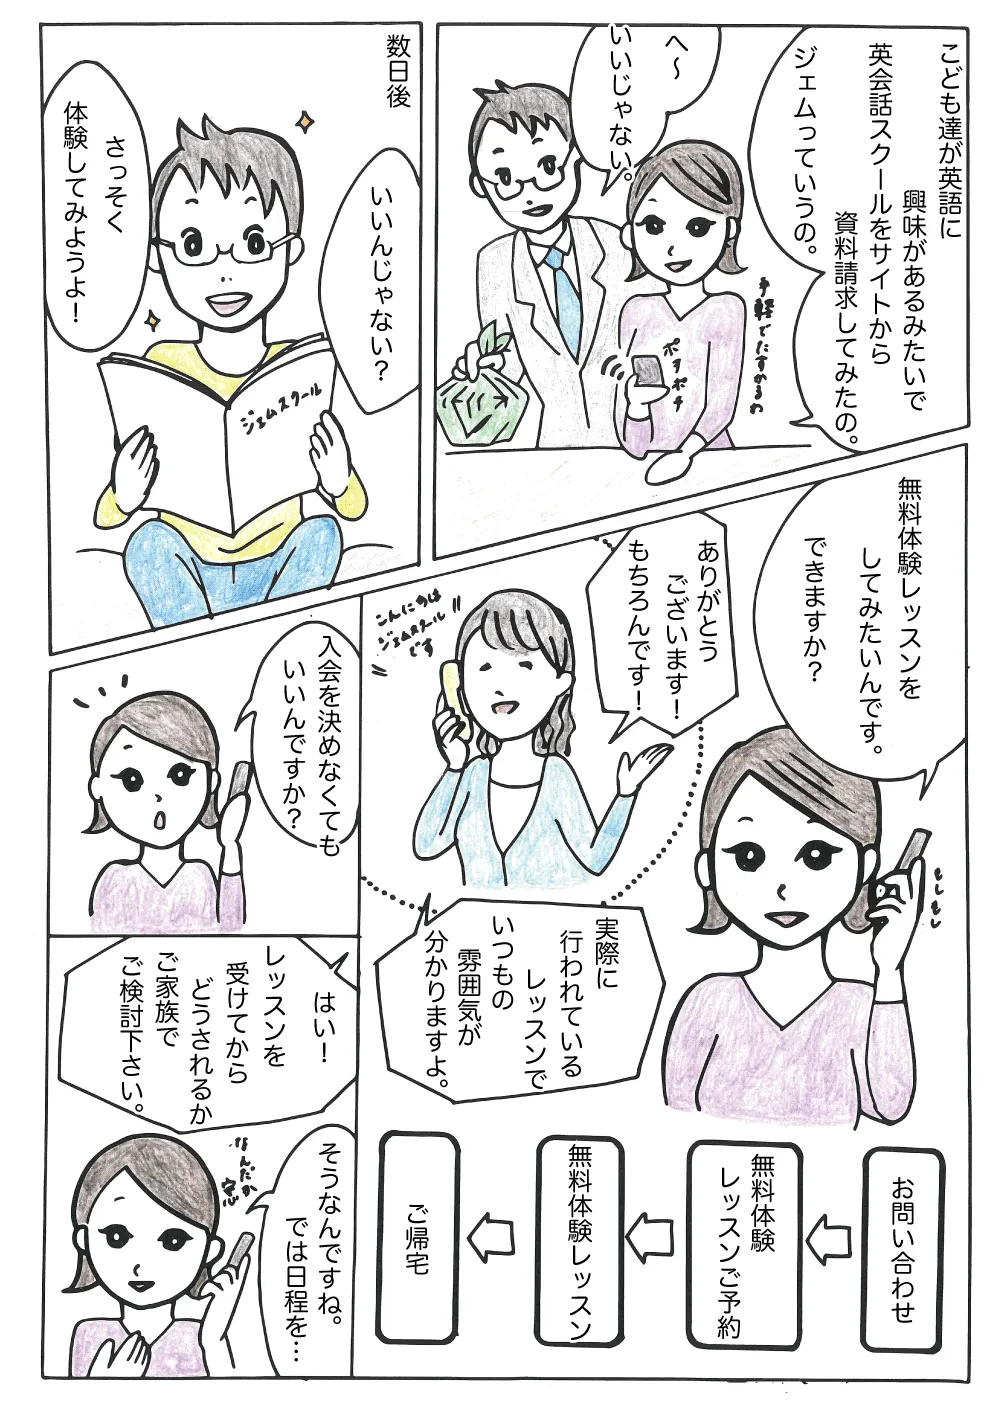 こども達が英語に
興味があるみたいで
英会話スクールをサイトから
資料請求してみたの。
ジェムっていうの。
へ〜
いいじゃない。
ポチポチ
数日後
いいんじゃない?
さっそく
体験してみようよ!
ジェムスクール
無料体験レッスンを
してみたいんです。
できますか?
もしもし
ありがとう
ございます!
もちろんです!
こんにちは
ジェムスクール
です
実際に
行われている
レッスンで
いつもの
雰囲気が
分かりますよ。
入会を決めなくても
いいんですか?
はい!
レッスンを
受けてから
どうされるか
ご家族で
ご検討下さい。
そうなんですね。
では日程を…
なんだか
お問い合わせ
無料体験
レッスンご予約
無料体験レッスン
ご帰宅